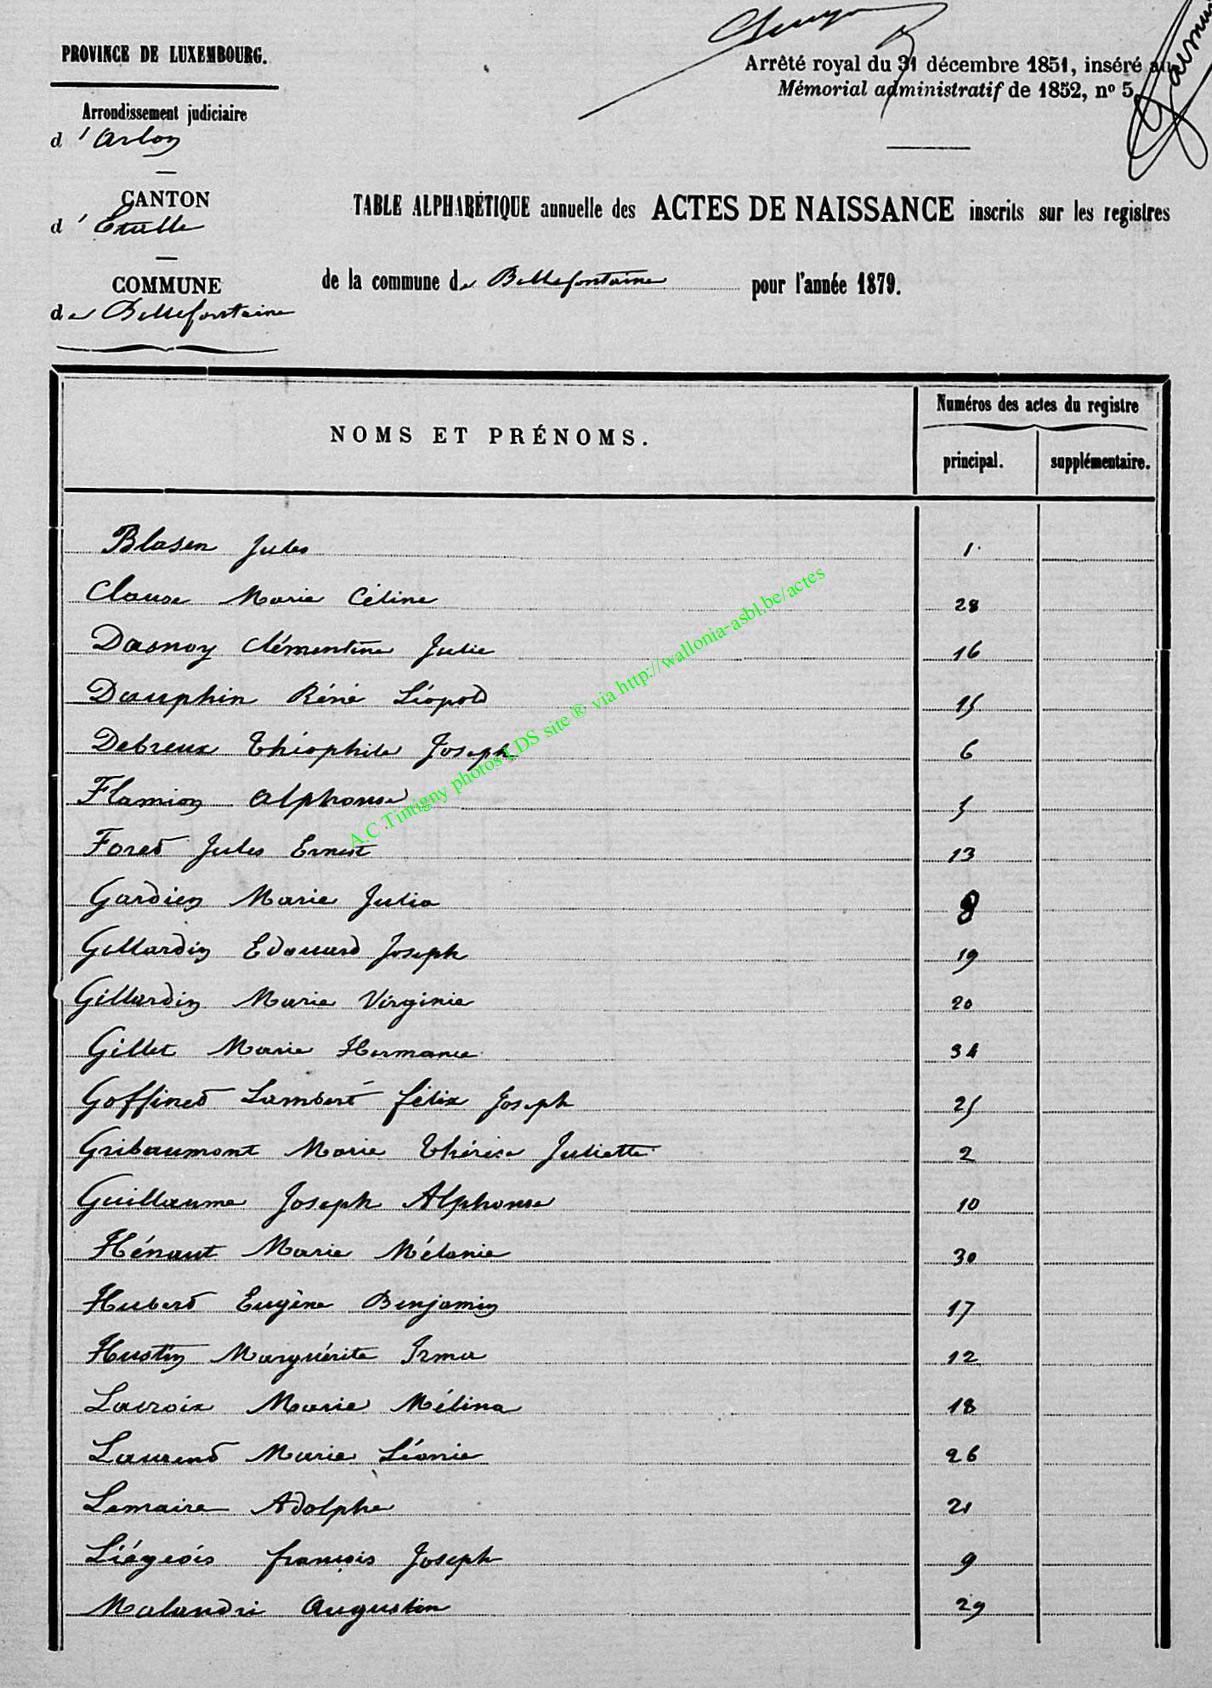 PROVINCE DE LUXEMBOURG.
Arrêté royal du 31 décembre 1851, inséré au
Mémorial administratif de 1852, nº 5
Arrondissement judiciaire
d'Arlon
CANTON
d'Etalle
COMMUNE
de Bellefontaine
TABLE ALPHABÉTIQUE annuelle des ACTES DE NAISSANCE inscrits sur les registres
de la commune de Bellefontaine pour l'année 1879.
NOMS ET PRÉNOMS.
Numéros des actes du registre
principal. supplémentaire.
Blasen Jules 1
Clause Marie Céline 28
Dasnoy Clémentine Julie 16
Dauphin Réné Léopold 15
Debreux Théophile Joseph 6
Flamion Alphonse 5
Foret Jules Ernest 13
Gardien Marie Julia 8
Gillardin Edouard Joseph 19
Gillardin Marie Virginie 20
Gillet Marie Hermance 34
Goffinet Lambert félix Joseph 25
Gribaumont Marie Thérèse Juliette 2
Guillaume Joseph Alphonse 10
Hénaut Marie Mélanie 30
Hubert Eugène Benjamin 17
Hustin Marguérite Irma 12
Lacroix Marie Mélina 18
Laurent Marie Léonie 26
Lemaire Adolphe 21
Liégeois françois Joseph 9
Malandri Augustin 29
A.C Tintigny photos LDS site ® via http://wallonia-asbl.be/actes